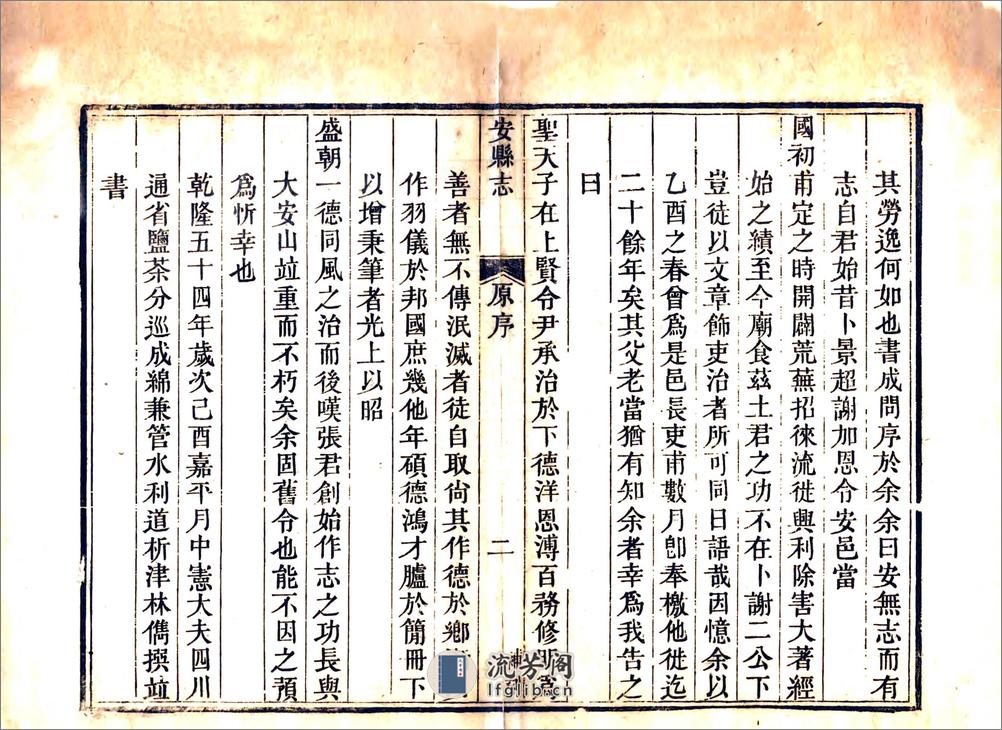 其勞逸何如也書成問序於余余曰安無志而有
志自君始昔卜景超謝加恩令安邑當
國初甫定之時開闢荒蕪招徠流徙興利除害大著經
始之績至今廟食茲土君之功不在卜謝二公下
豈徒以文章飾吏治者所可同日語哉因憶余以
乙酉之春曾爲是邑長吏甫數月卽奉檄他徙迄
二十餘年矣其父老當猶有知余者幸爲我告之
曰
聖天子在上賢令尹承治於下德洋恩溥百務修
安縣志 原序 二
善者無不傳泯滅者徒自取尙其作德於鄉
作羽儀於邦國庶幾他年碩德鴻才臚於簡冊下
以增秉筆者光上以昭
盛朝一德同風之治而後嘆張君創始作志之功長與
大安山竝重而不朽矣余固舊令也能不因之預
爲忻幸也
乾隆五十四年歲次己酉嘉平月中憲大夫四川
通省鹽茶分巡成綿兼管水利道析津林儁撰竝
書
流芳阁
lfglib.cn